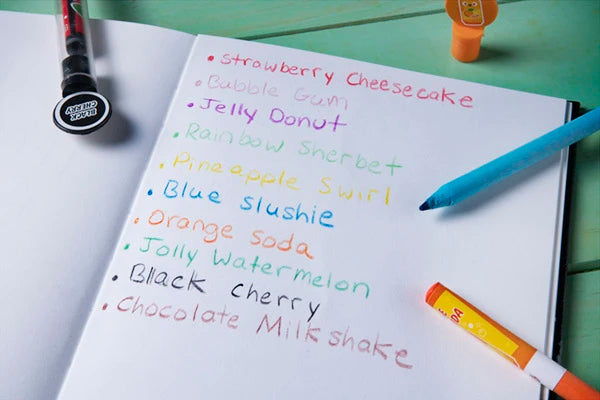 • Strawberry Cheesecake
• Babble Gum
• Jelly Donut
• Rainbow Sherbet
• Pineapple Swirl
• Blue Slushie
• Orange Soda
• Jolly Watermelon
• Bllack Cherry
• Chocolate Milkshake
BLACK
CHERRY